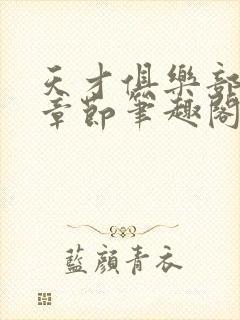 天才俱樂部
章節筆趣閣
藍顏青衣